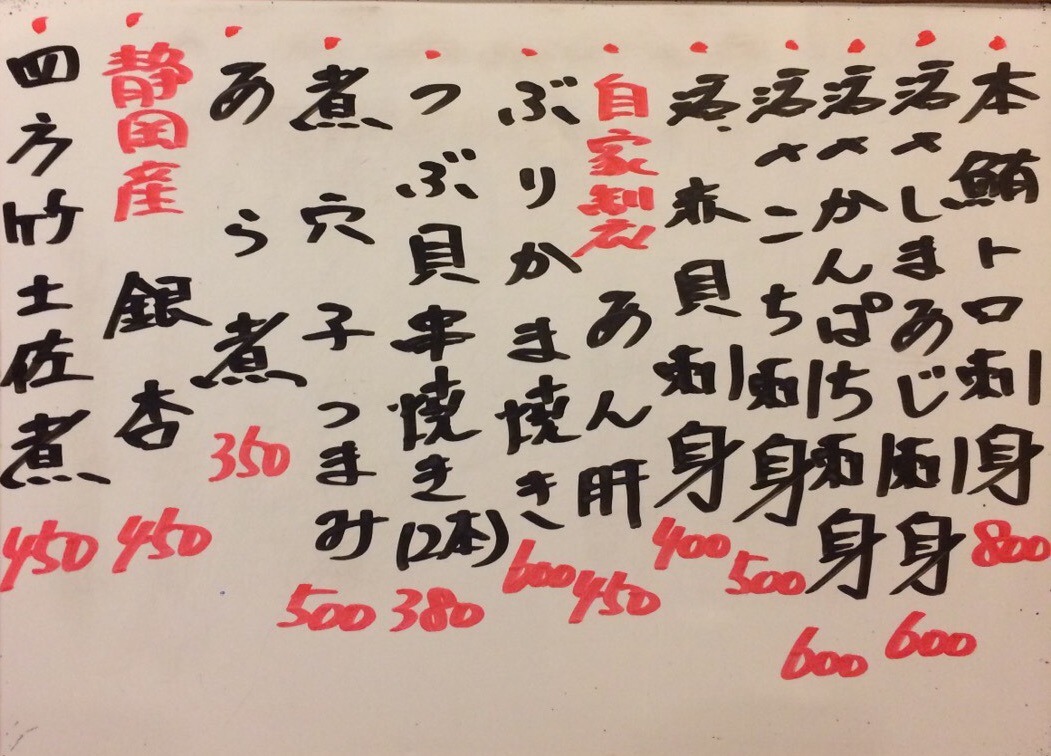 本鮪トロ刺身 800
活〆しまあじ刺身 600
活〆かんぱち刺身 600
活〆こち刺身 500
活赤貝刺身 400
自家製あん肝 450
ぶりかま焼き 600
つぶ貝串焼き(2本) 380
煮穴子つまみ 500
あら煮 350
静岡産 銀杏 450
四方竹土佐煮 450